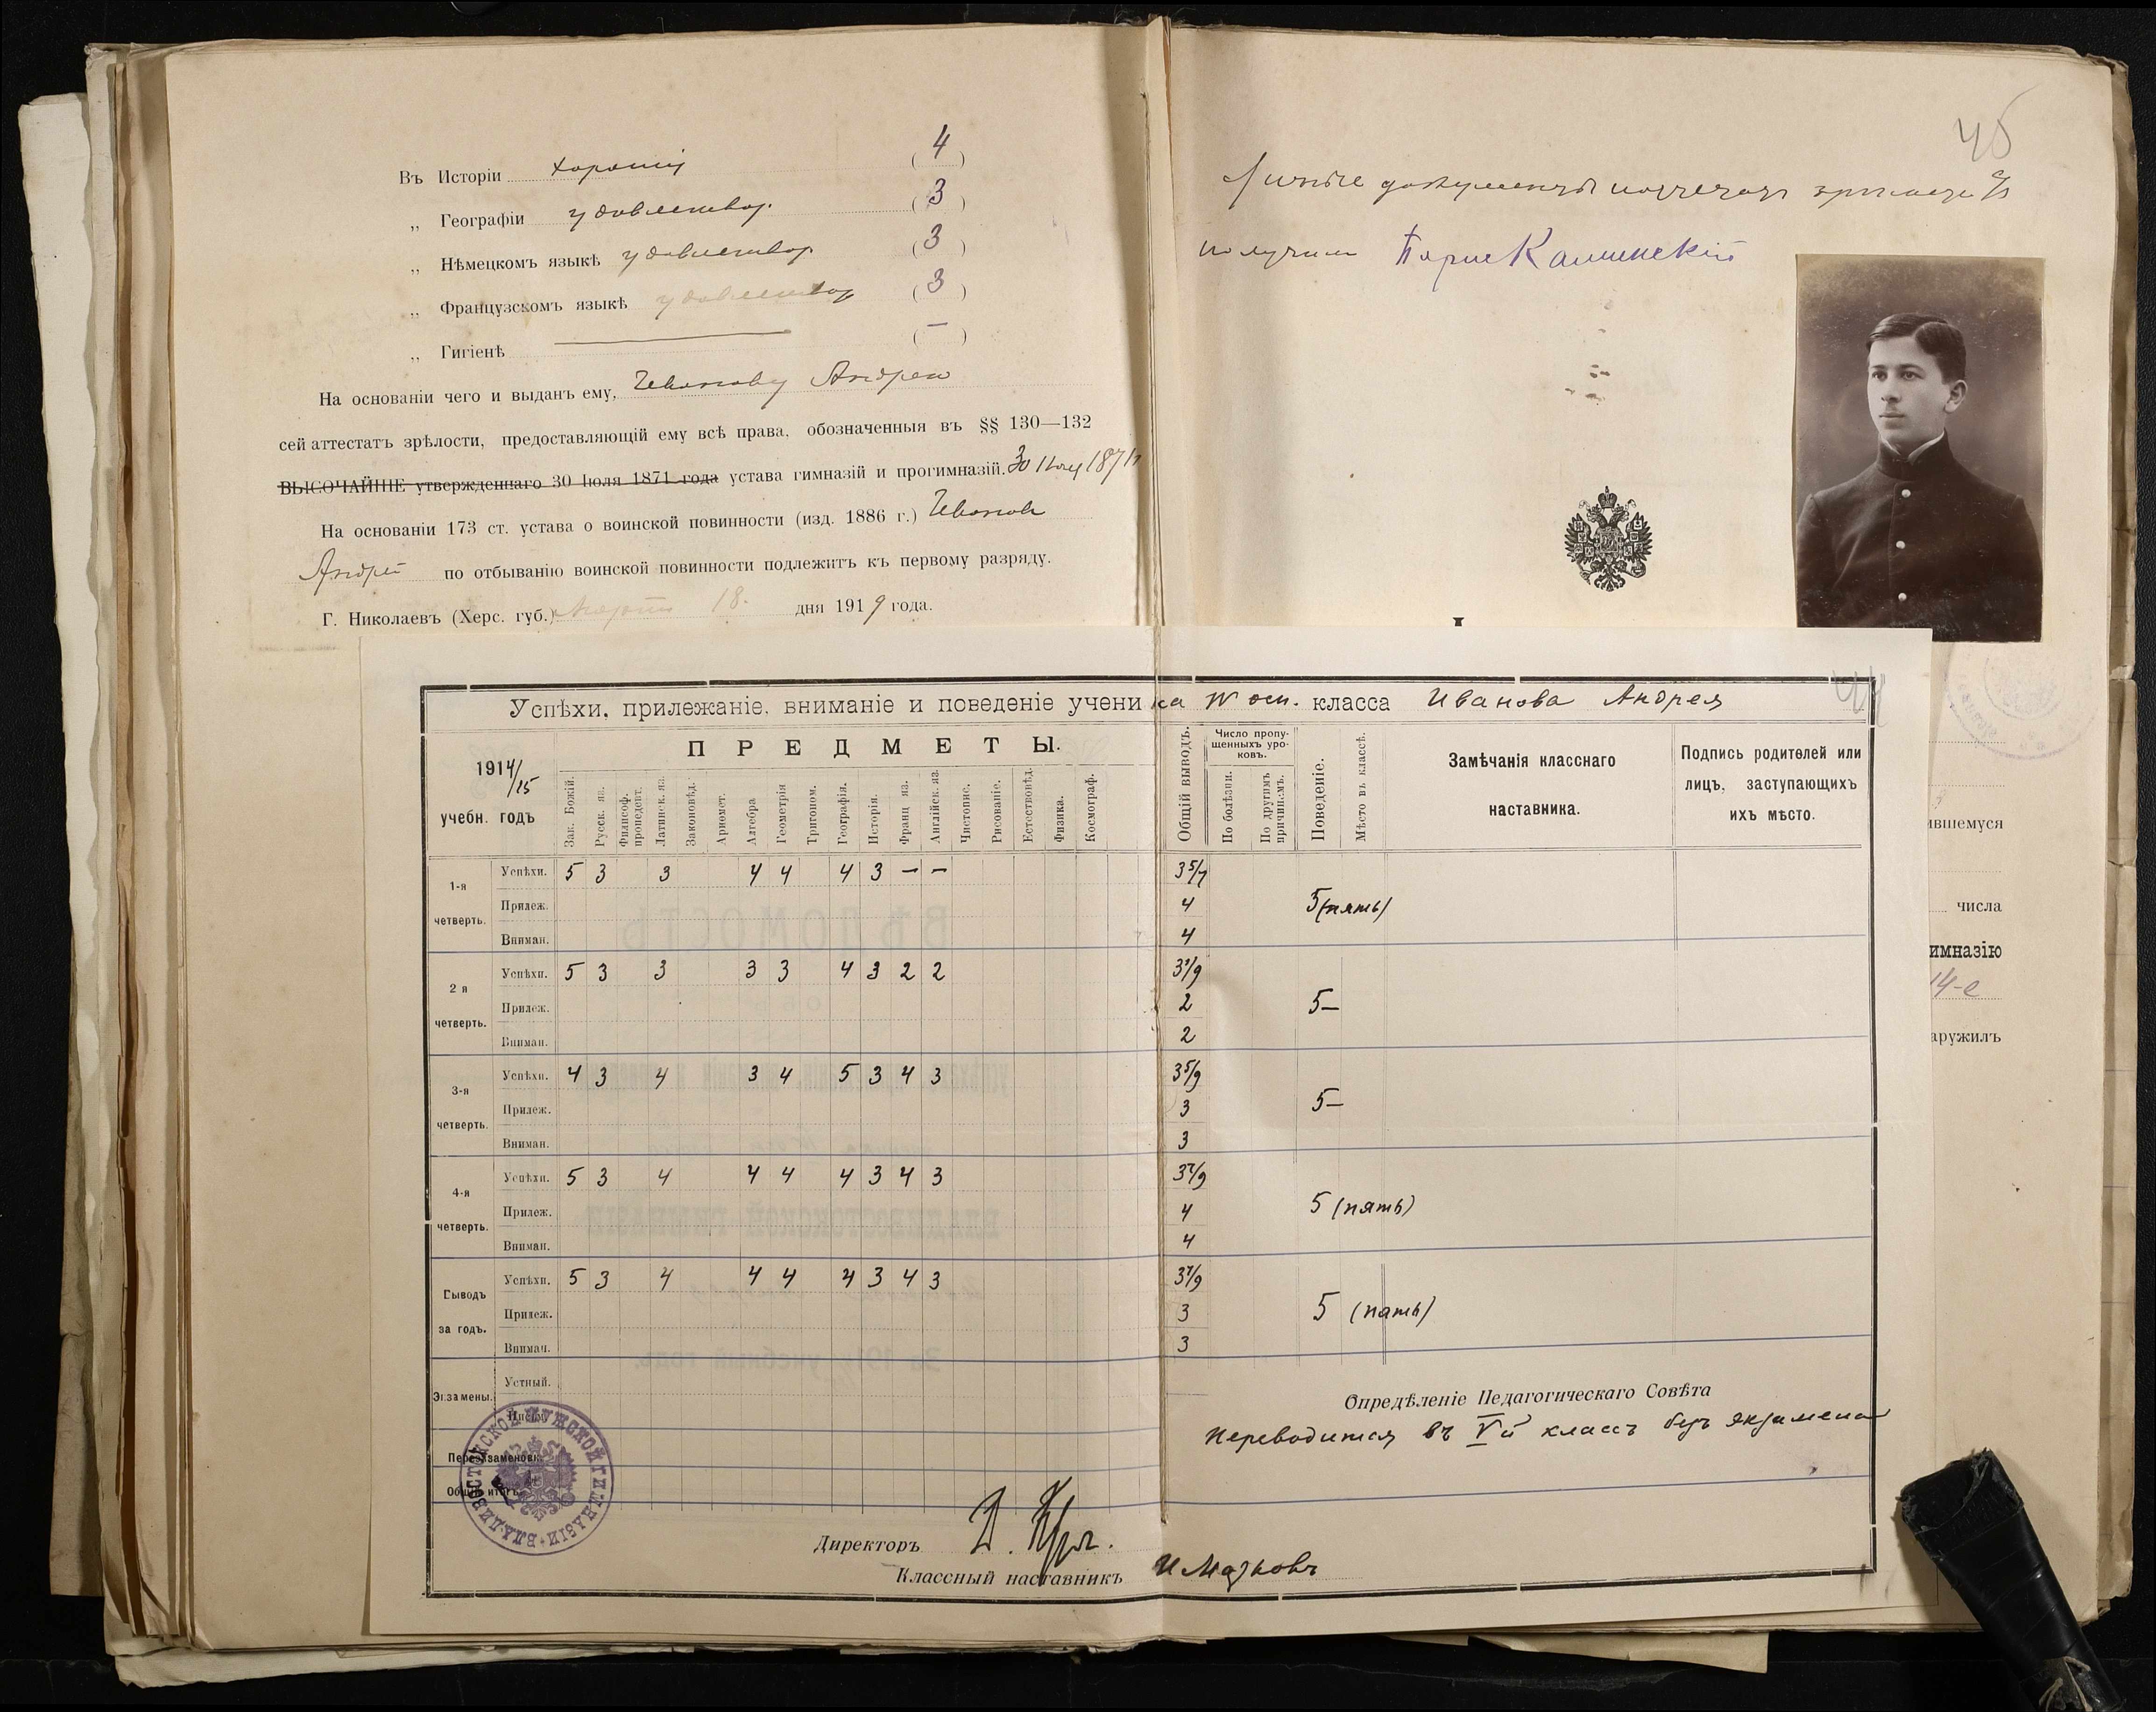 Въ Исторіи хорошія (4)
„ Географіи удовлетвор. (3)
„ Нѣмецкомъ языкѣ удовлетвор (3)
„ Французскомъ языкѣ удовлетвор (3)
„ Гигіенѣ — (—)
На основаніи чего и выданъ ему, Иванову Андрею
сей аттестатъ зрѣлости, предоставляющій ему всѣ права, обозначенныя въ §§ 130—132
ВЫСОЧАЙШЕ утвержденнаго 30 Іюля 1871 года устава гимназій и прогимназій. 30 Іюля 1871
На основаніи 173 ст. устава о воинской повинности (изд. 1886 г.) Ивановъ
Андрей по отбыванію воинской повинности подлежитъ къ первому разряду.
Г. Николаевъ (Херс. губ.) 18. дня 1919 года.
документы
получилъ
ившемуся
числа
имназію
14-е
аружилъ
Успѣхи, прилежаніе, вниманіе и поведеніе ученика IV осн. класса Иванова Андрея
1914/15
учебн. годъ
ПРЕДМЕТЫ.
Зак. Божій.
Русск. яз.
Философ. пропедевт.
Латинск. яз.
Законовѣд.
Ариөмет.
Алгебра
Геометрія
Тригоном.
Географія.
Исторія.
Франц яз.
Англійск. яз.
Чистопис.
Рисованіе.
Естествовѣд.
Физика.
Космограф.
Общій выводъ.
Число пропущенныхъ уроковъ.
По болѣзни.
По другимъ причинамъ.
Поведеніе.
Мѣсто въ классѣ.
Замѣчанія класснаго
наставника.
Подпись родителей или
лицъ, заступающихъ
ихъ мѣсто.
1-я четверть.
Успѣхи. 5 3 3 4 4 4 3 — — 3 5/7
Прилеж. 4 5 (пять)
Вниман. 4
2 я четверть.
Успѣхи. 5 3 3 3 3 4 3 2 2 3 1/9
Прилеж. 2 5—
Вниман. 2
3-я четверть.
Успѣхи. 4 3 4 3 4 5 3 4 3 3 5/9
Прилеж. 3 5—
Вниман. 3
4-я четверть.
Успѣхи. 5 3 4 4 4 4 3 4 3 3 7/9
Прилеж. 4 5 (пять)
Вниман. 4
Выводъ за годъ.
Успѣхи. 5 3 4 4 4 4 3 4 3 3 7/9
Прилеж. 3 5 (пять)
Вниман. 3
Экзамены.
Устный.
Письм.
Переэкзаменовк.
Общій итогъ
Опредѣленіе Педагогическаго Совѣта
Переводится въ Vй классъ безъ экзамена
Директоръ
Классный наставникъ
ВЛАДИВОСТОКСКОЙ МУЖСКОЙ ГИМНАЗІИ